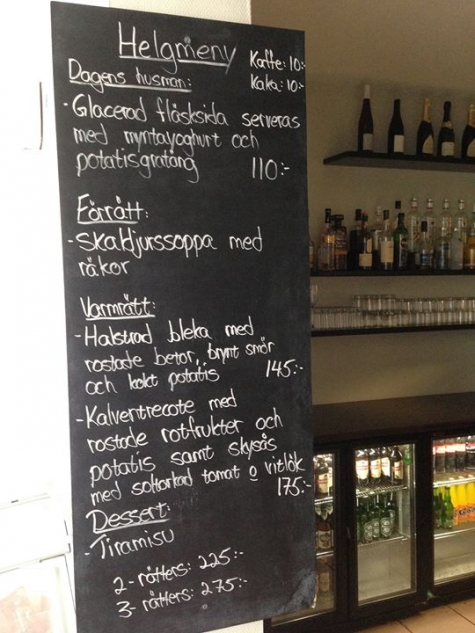 Helgmeny
Kaffe: 10:-
Kaka: 10:-
Dagens husman:
- Glacerad fläsksida serveras
med myntayoghurt och
potatisgratäng 110:-
Förrätt:
- Skaldjurssoppa med
räkor
Varmrätt:
- Halstrad bleka med
rostade betor, brynt smör
och kokt potatis 145:-
- Kalventrecote med
rostade rotfrukter och
potatis samt skysås
med soltorkad tomat o vitlök
175:-
Dessert:
- Tiramisu
2-rätters: 225:-
3-rätters: 275:-